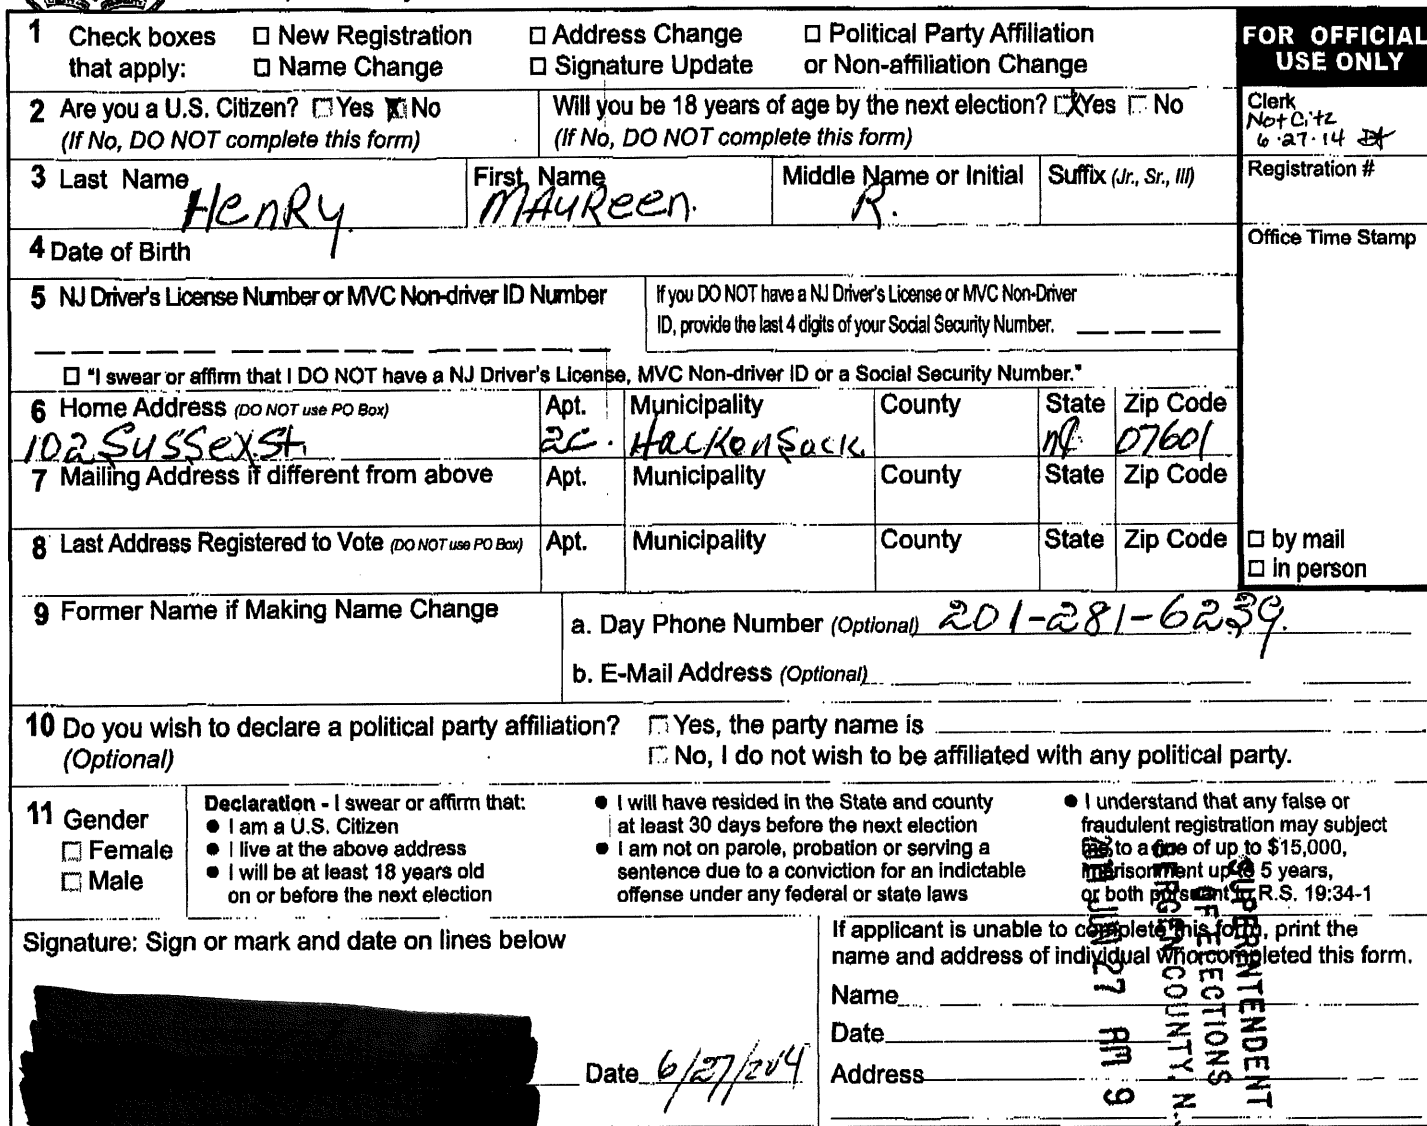 1 Check boxes that apply: □ New Registration □ Address Change □ Political Party Affiliation or Non-affiliation Change
□ Name Change □ Signature Update
FOR OFFICIAL USE ONLY
2 Are you a U.S. Citizen? □ Yes ☒ No
(If No, DO NOT complete this form)
Will you be 18 years of age by the next election? ☒ Yes □ No
(If No, DO NOT complete this form)
Clerk
Not Citz
6·27·14
3 Last Name Henry
First Name Maureen.
Middle Name or Initial R.
Suffix (Jr., Sr., III)
Registration #
4 Date of Birth
Office Time Stamp
5 NJ Driver's License Number or MVC Non-driver ID Number
If you DO NOT have a NJ Driver's License or MVC Non-Driver
ID, provide the last 4 digits of your Social Security Number.
□ "I swear or affirm that I DO NOT have a NJ Driver's License, MVC Non-driver ID or a Social Security Number."
6 Home Address (DO NOT use PO Box) Apt. Municipality County State Zip Code
102 Sussex St. 2C. Hackensack NJ 07601
7 Mailing Address if different from above Apt. Municipality County State Zip Code
8 Last Address Registered to Vote (DO NOT use PO Box) Apt. Municipality County State Zip Code
□ by mail
□ in person
9 Former Name if Making Name Change
a. Day Phone Number (Optional) 201-281-6239.
b. E-Mail Address (Optional)
10 Do you wish to declare a political party affiliation? □ Yes, the party name is
(Optional) □ No, I do not wish to be affiliated with any political party.
11 Gender
□ Female
□ Male
Declaration - I swear or affirm that:
● I am a U.S. Citizen
● I live at the above address
● I will be at least 18 years old
on or before the next election
● I will have resided in the State and county
at least 30 days before the next election
● I am not on parole, probation or serving a
sentence due to a conviction for an indictable
offense under any federal or state laws
● I understand that any false or
fraudulent registration may subject
me to a fine of up to $15,000,
imprisonment up to 5 years,
or both pursuant to R.S. 19:34-1
Signature: Sign or mark and date on lines below
Date 6/27/2014
If applicant is unable to complete this form, print the
name and address of individual who completed this form.
Name
Date
Address
SUPERINTENDENT
OF ELECTIONS
BERGEN COUNTY, N.
JUN 27 AM 9